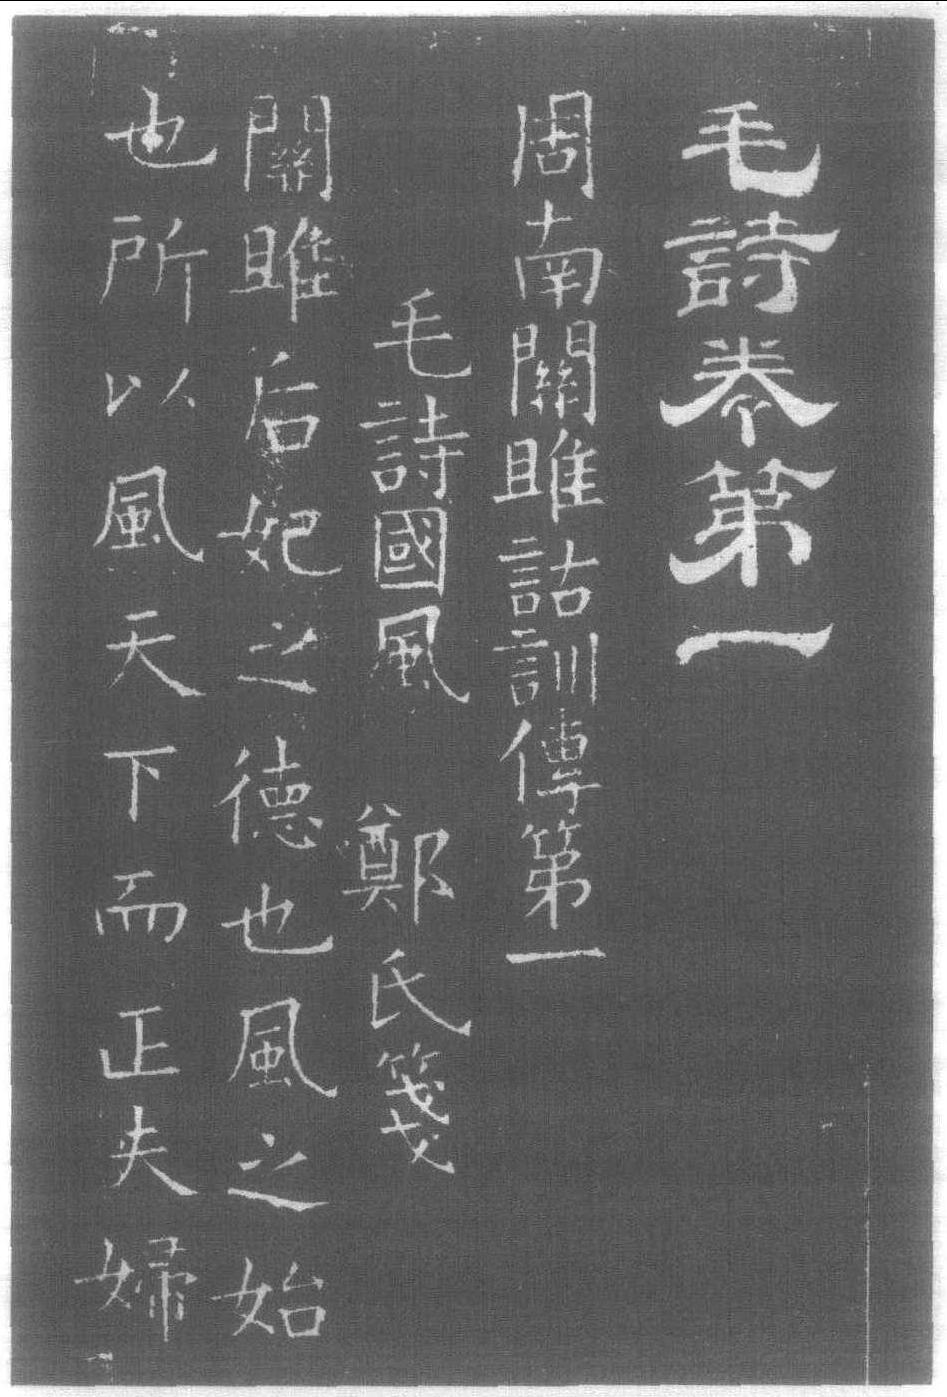 毛詩卷第一
周南關雎詁訓傳第一
毛詩國風 鄭氏箋
關雎后妃之德也風之始
也所以風天下而正夫婦